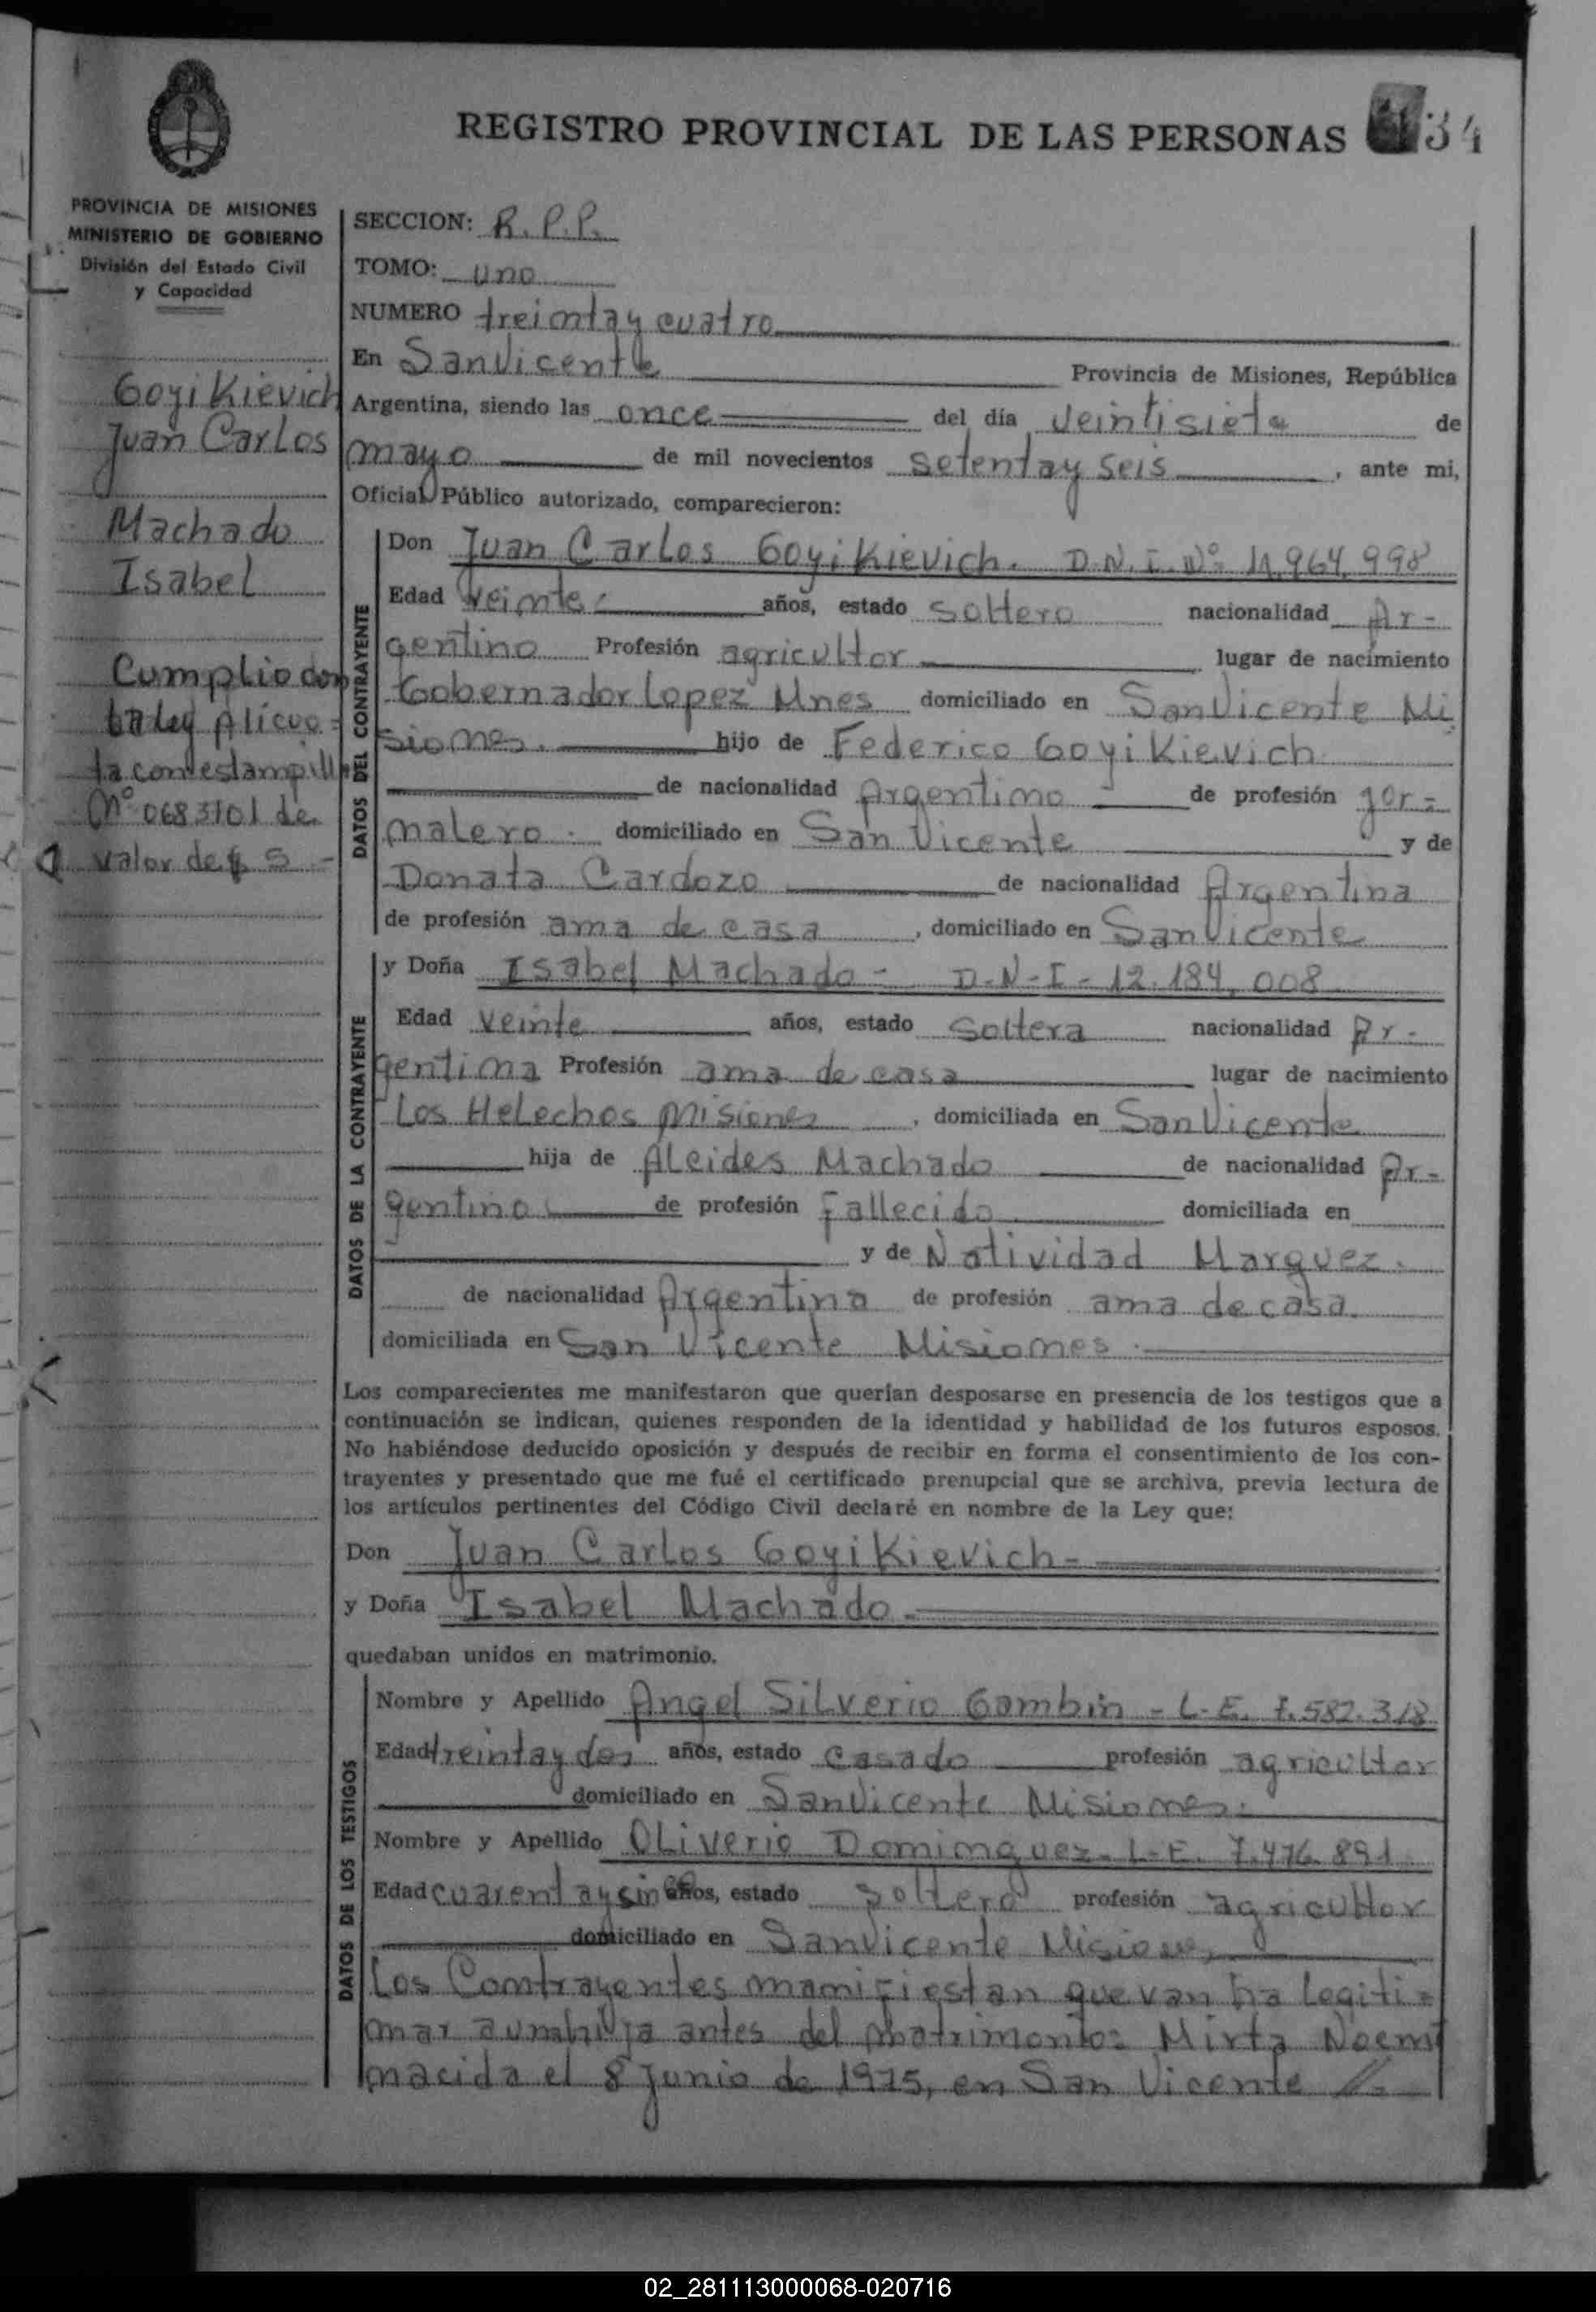 REGISTRO PROVINCIAL DE LAS PERSONAS 34
PROVINCIA DE MISIONES
MINISTERIO DE GOBIERNO
División del Estado Civil
y Capacidad
Goyi Kievich
Juan Carlos
Machado
Isabel
Cumplio con
la ley Alicuo-
ta con estampilla
Nº 0683101 de
valor de $ 5 -
SECCION: R.P.P.
TOMO: uno
NUMERO treinta y cuatro
En San Vicente Provincia de Misiones, República
Argentina, siendo las once del día veintisiete de
mayo de mil novecientos setenta y seis, ante mi,
Oficial Público autorizado, comparecieron:
DATOS DEL CONTRAYENTE
Don Juan Carlos Goyi Kievich. D.N.I. Nº 11.964.998
Edad veinte años, estado soltero nacionalidad Ar-
gentino Profesión agricultor lugar de nacimiento
Gobernador Lopez Mnes domiciliado en San Vicente Mi
siones. hijo de Federico Goyi Kievich
de nacionalidad Argentino de profesión jor-
nalero. domiciliado en San Vicente y de
Donata Cardozo de nacionalidad Argentina
de profesión ama de casa, domiciliado en San Vicente
DATOS DE LA CONTRAYENTE
y Doña Isabel Machado - D-N-I- 12.184.008
Edad veinte años, estado soltera nacionalidad Ar-
gentina Profesión ama de casa lugar de nacimiento
Los Helechos Misiones, domiciliada en San Vicente
hija de Alcides Machado de nacionalidad Ar-
gentino de profesión Fallecido domiciliada en
y de Natividad Marquez.
de nacionalidad Argentina de profesión ama de casa.
domiciliada en San Vicente Misiones.
Los comparecientes me manifestaron que querían desposarse en presencia de los testigos que a
continuación se indican, quienes responden de la identidad y habilidad de los futuros esposos.
No habiéndose deducido oposición y después de recibir en forma el consentimiento de los con-
trayentes y presentado que me fué el certificado prenupcial que se archiva, previa lectura de
los artículos pertinentes del Código Civil declaré en nombre de la Ley que:
Don Juan Carlos Goyi Kievich-
y Doña Isabel Machado.
quedaban unidos en matrimonio.
DATOS DE LOS TESTIGOS
Nombre y Apellido Angel Silverio Gambin - L.E. 7.582.318
Edad treinta y dos años, estado casado profesión agricultor
domiciliado en San Vicente Misiones.
Nombre y Apellido Oliverio Dominguez. L-E. 7.476.891
Edad cuarenta y sinco años, estado soltero profesión agricultor
domiciliado en San Vicente Misiones
Los Contrayentes manifiestan que van ha Legiti-
mar a una hija antes del matrimonio: Mirta Noemi
nacida el 8 junio de 1975, en San Vicente
02_281113000068-020716